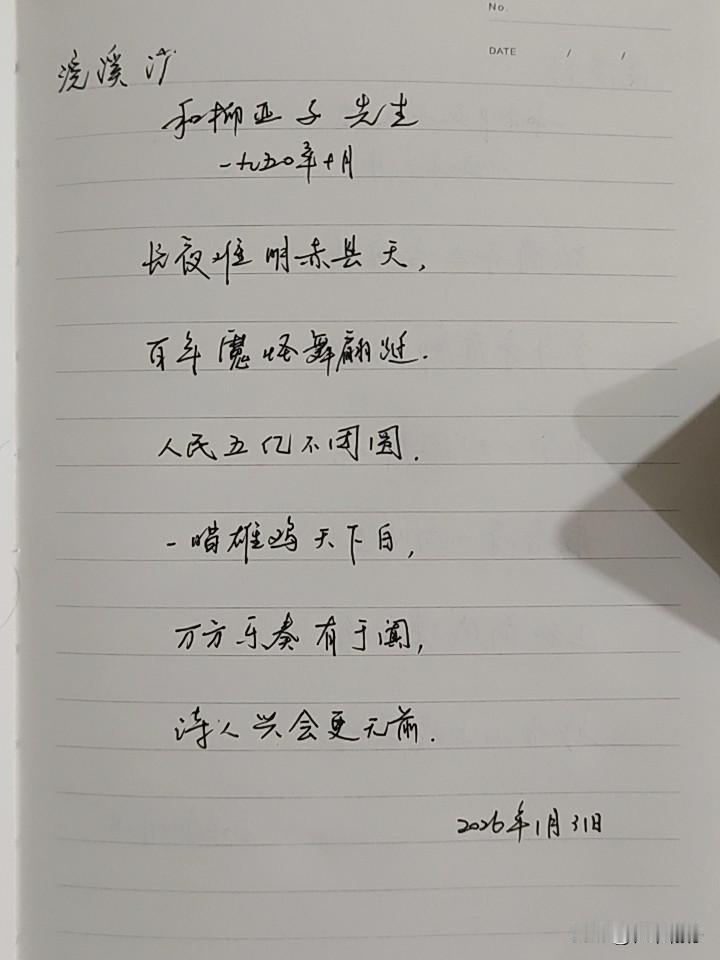 No.
DATE / /
浣溪沙
和柳亚子先生
一九五〇年十月
长夜难明赤县天,
百年魔怪舞翩跹.
人民五亿不团圆.
一唱雄鸡天下白,
万方乐奏有于阗,
诗人兴会更无前.
2026年1月31日